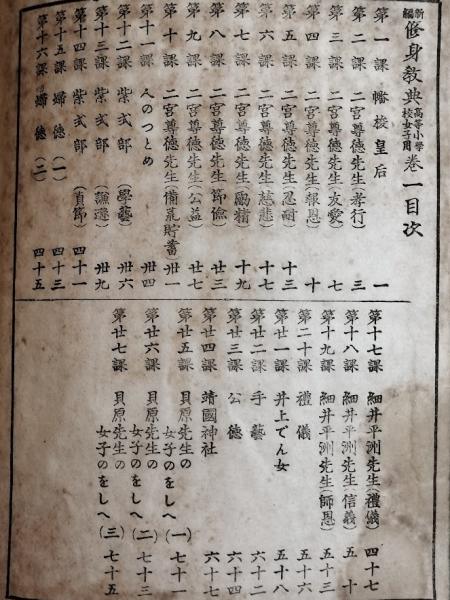 新編 修身教典 高等小學校女子用 卷一目次
第一課 幡梭皇后 一
第二課 二宮尊德先生(孝行) 三
第三課 二宮尊德先生(友愛) 七
第四課 二宮尊德先生(報恩) 十
第五課 二宮尊德先生(忍耐) 十三
第六課 二宮尊德先生(慈悲) 十七
第七課 二宮尊德先生(勵精) 十九
第八課 二宮尊德先生(節儉) 廿三
第九課 二宮尊德先生(公益) 廿七
第十課 二宮尊德先生(備荒貯蓄) 卅一
第十一課 人のつとめ 卅四
第十二課 紫式部 (學藝) 卅六
第十三課 紫式部 (謙遜) 卅九
第十四課 紫式部 (貞節) 四十一
第十五課 婦德(一) 四十三
第十六課 婦德(二) 四十五
第十七課 細井平洲先生(禮儀) 四十七
第十八課 細井平洲先生(信義) 五十
第十九課 細井平洲先生(師恩) 五十三
第二十課 禮儀 五十六
第廿一課 井上でん女 五十八
第廿二課 手藝 六十二
第廿三課 公德 六十四
第廿四課 靖國神社 六十七
第廿五課 貝原先生の女子のをしへ(一) 七十一
第廿六課 貝原先生の女子のをしへ(二) 七十三
第廿七課 貝原先生の女子のをしへ(三) 七十五